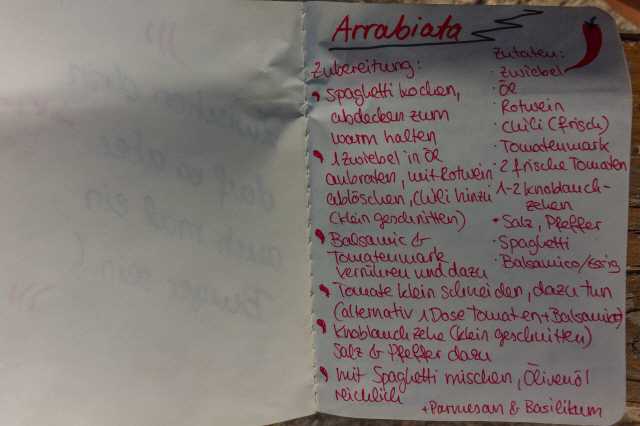 Arrabiata
Zubereitung:
Spaghetti kochen,
abdecken zum
warm halten
1 Zwiebel in Öl
anbraten, mit Rotwein
ablöschen, Chili hinzu
(klein geschnitten)
Balsamic &
Tomatenmark
verrühren und dazu
Tomate klein schneiden, dazu tun
(alternativ 1 Dose Tomaten + Balsamico)
Knoblauchzehe (klein geschnitten)
Salz & Pfeffer dazu
mit Spaghetti mischen, Olivenöl
reichlich
+ Parmesan & Basilikum
Zutaten:
· Zwiebel
· Öl
· Rotwein
· Chili (frisch)
· Tomatenmark
· 2 frische Tomaten
1-2 Knoblauch-
zehen
· Salz, Pfeffer
· Spaghetti
· Balsamico/Essig
darf es aber
auch mal ein
Burger sein